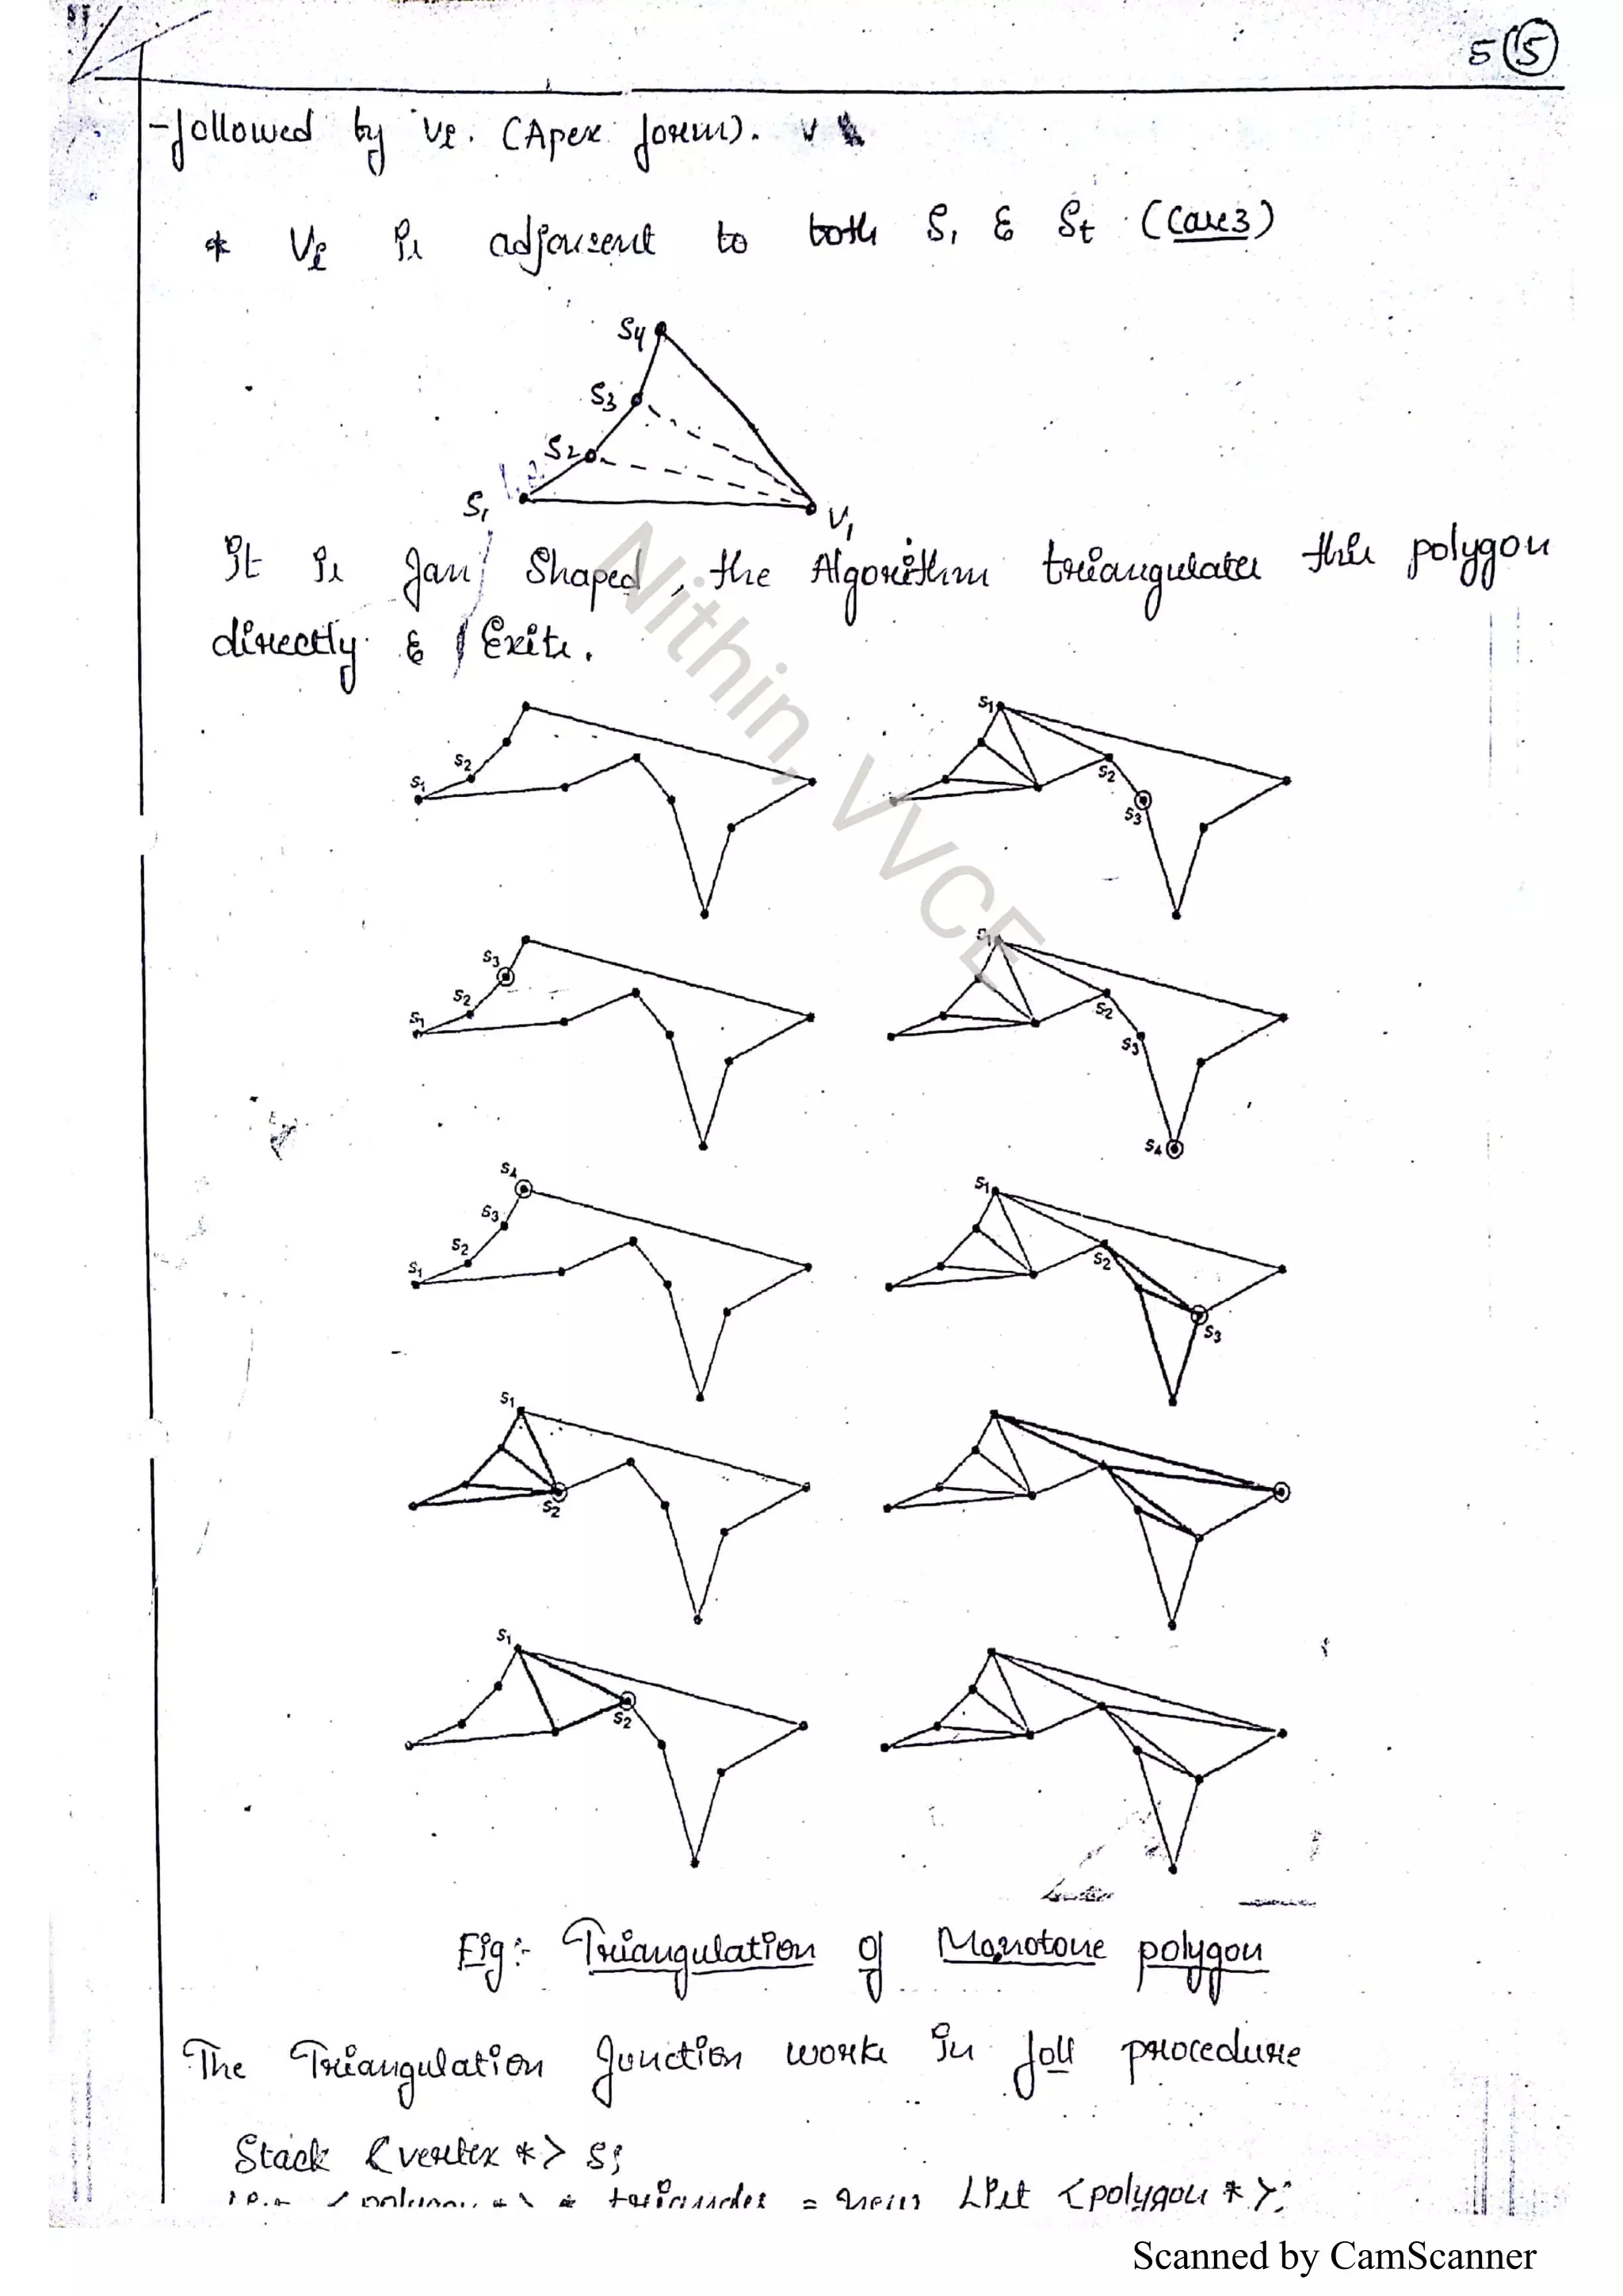 5 (15)
followed by Vi. (Apex form).
* Vi is adjausent to both S1 & St (Case3)
S4
S3
S2
S1
V1
It is fan Shaped, the Algorithm triangulates this polygon
directly & Exits.
S1 S2
S1 S2 S3
S1 S2 S3
S1 S2 S3 S4
S1 S2 S3 S4
S1 S2 S3
S1 S2
S1 S2
Fig:- Triangulation of Monotone polygon
The Triangulation function works in foll procedure
Stack <vertex *> s;
List <polygon *> * triangles = new List <polygon *>;
Nithin, VVCE
Scanned by CamScanner